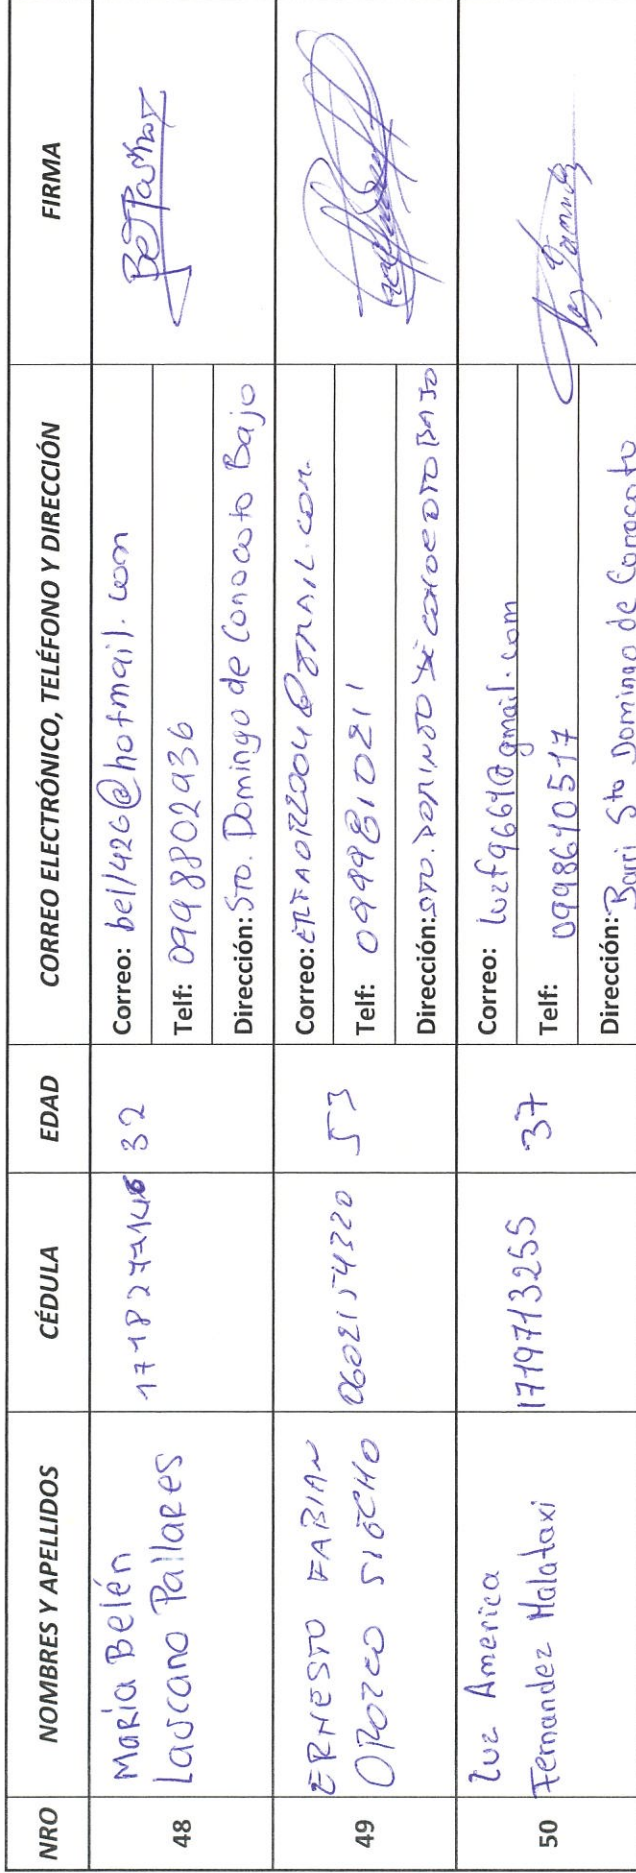 NRO NOMBRES Y APELLIDOS CÉDULA EDAD CORREO ELECTRÓNICO, TELÉFONO Y DIRECCIÓN FIRMA
48
María Belén
Lascano Pallares
32
Correo: bell426@hotmail.com
Telf: 0998802936
Dirección: Sto. Domingo de Conocoto Bajo
49
ERNESTO FABIAN
OROZCO SIGCHO
0602154320
53
Correo:
Telf: 0999810211
Dirección: STO. DOMINGO DE CONOCOTO BAJO
50
Luz America
Fernandez Malataxi
1719713255
37
Correo: luzf9661@gmail.com
Telf: 0998610517
Dirección: Barri Sto Domingo de Conocoto